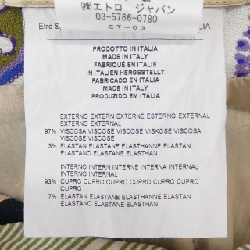 ㈱エトロ ジャパン
03-5786-0780
Etro S
ET-03
PRODOTTO IN ITALIA
MADE IN ITALY
FABRIQUE EN ITALIE
IN ITALIEN HERGESTELLT
FABRICADO EN ITALIA
MADE IN ITALY
PRODUZIDO EM ITALIA
EXTERNO EXTERN EXTERNE EXTERNO EXTERNAL
EXTERNO EXTERNAL
97% VISCOSA VISCOSE VISCOSE VISKOSE VISCOSA
VISCOSE VISCOSE
3% ELASTAN ELASTAN ELASTHANNE ELASTAN
ELASTANO ELASTAN ELASTHAN
INTERNO INTERN INTERNE INTERNA INTERNAL
INTERNO INTERNAL
93% CUPRO CUPRO CUPRO CUPRO CUPRO CUPRO
CUPRO
7% ELASTAN ELASTAN ELASTHANNE ELASTAN
ELASTANO ELASTAN ELASTHAN